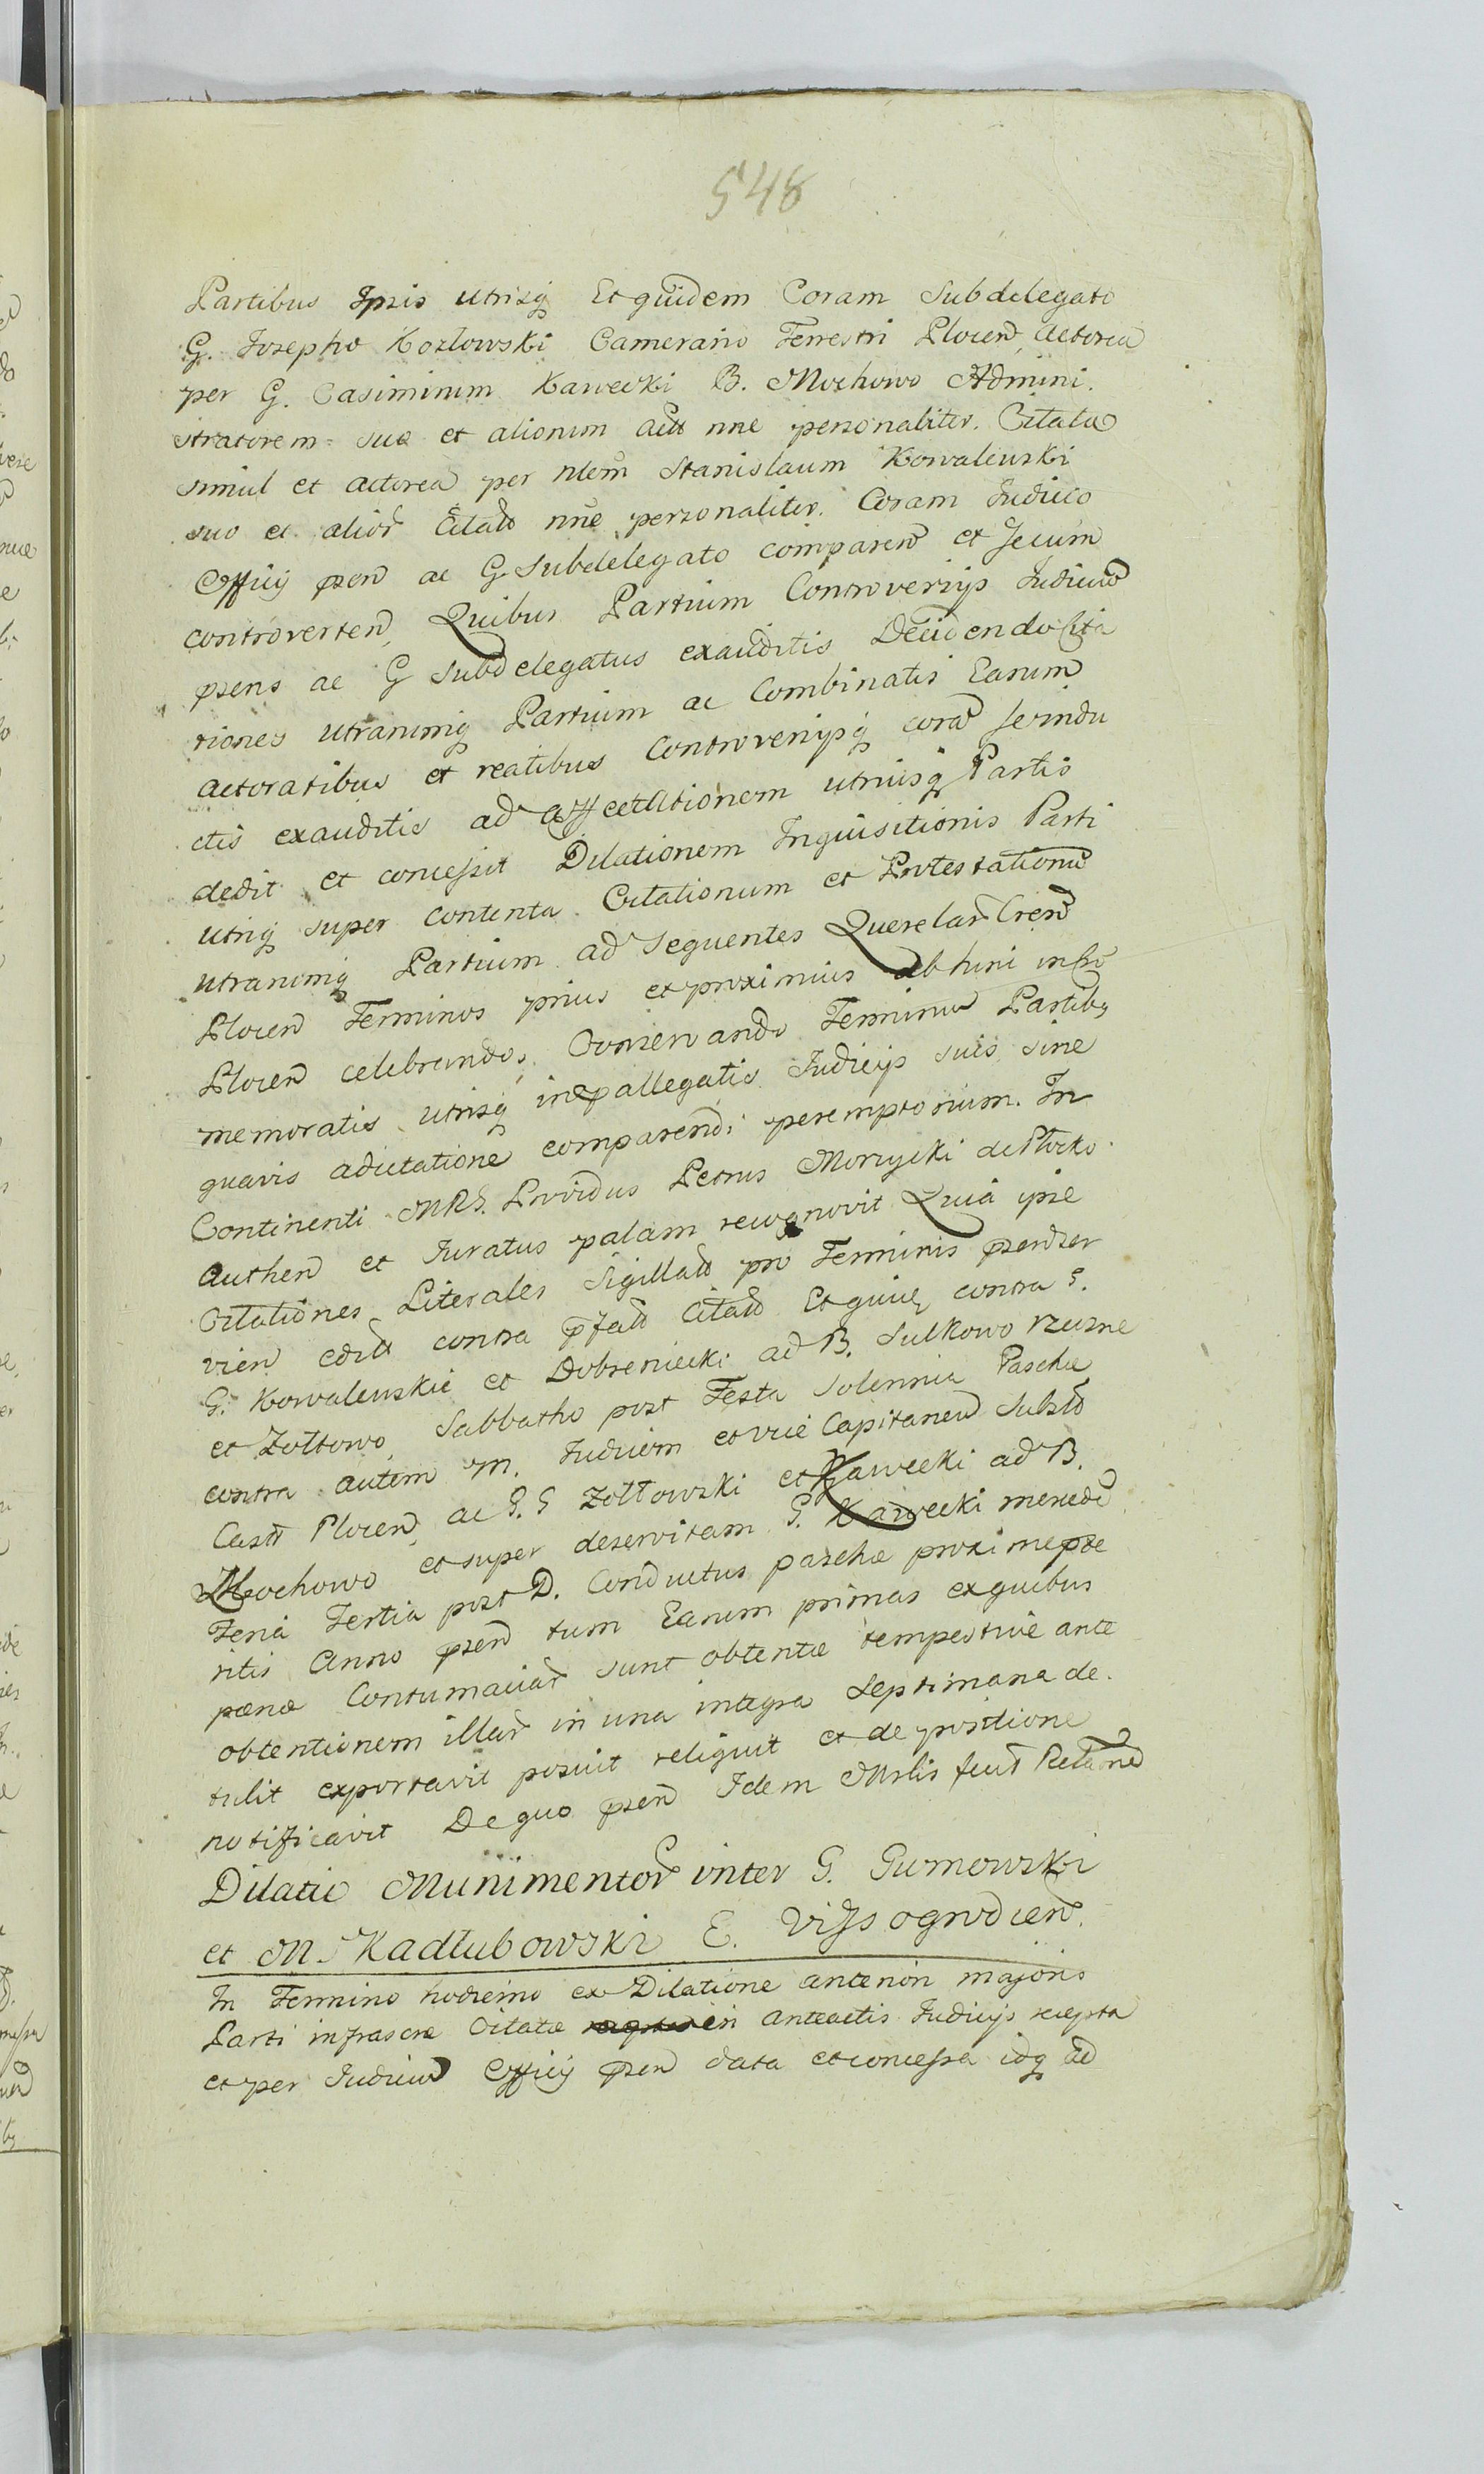 548
Partibus Ipsis utrisq Et quidem Coram Subdelegato
G. Josepho Kozlowski Camerario Terrestri Plocen Actorea
per G. Casimirum Kawecki B. Mochowo Admini.
stratorem suo et aliorum Act nne personaliter. Citata
simul et actorea per Nlem Stanislaum Kowalewski
suo et alior Citat nne personaliter. Coram Judicio
Officij psen ac G Subdelegato comparen et secum
controverten, Quibus Partium Controversijs Judicium
psens ac G Subdelegatus exauditis Decidendo Cita
tiones utrarumq Partium ac Combinatis Earum
actoratibus et reatibus Controversijsq cora se indu
ctis exauditis ad affectationem utriusq Partis
dedit et concessit Dilationem Inquisitionis Parti
utriq super contenta Citationum et Protestationu
utrarumq Partium ad sequentes Querelar Cren
Plocen Terminos prius et proximius abhinc in Cro
Plocen celebrandos, Conservando Terminu Partibq
memoratis utrisq in pallegatis Judicijs suis sine
quavis adcitatione comparendi peremptorium. In
Continenti MRS. Providus Petrus Morzycki de Płocko
Authen et Juratus palam recognovit Quia ipse
Citationes Literales Sigillat pro Terminis psen ser
vien edit contra pfat Citat Et quid, contra G.
G. Kowalewskie et Dobrzeniecki ad B. Sulkowo rzeczne
et Zołtowo Sabbatho post Festa Solennia Paschae
contra autem M. Judicem et vice Capitaneu Substt
Castr Plocen ac G. G Zołtowski et Kawecki ad B.
Mochowo et super deservitam G. Kawecki mercede
Feria Tertia post D. Conductus paschae proxime pre
ritis Anno psen tum Earum primas ex quibus
paenae Contumaciar sunt obtentae tempestive ante
obtentionem illar in una integra Septimana de.
tulit exportavit posuit reliquit et de positione
notificavit De quo psen Idem Mrlis fecit Relatione
Dilatio Munimentor inter G. Gumowski
et M. Kadłubowski E. Vissogrodien
In Termino hodierno ex Dilatione anteriori majoris
Parti infrascrae Citatae in anteactis Judicijs recepta
et per Judicium Officij psen data et concessa idq ad